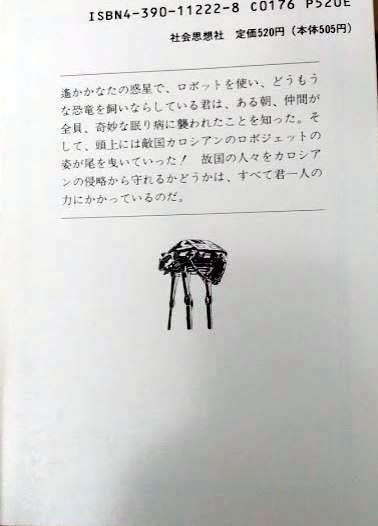 ISBN4-390-11222-8 C0176 P520E
社会思想社 定価520円(本体505円)
遙かかなたの惑星で、ロボットを使い、どうもう
な恐竜を飼いならしている君は、ある朝、仲間が
全員、奇妙な眠り病に襲われたことを知った。そ
して、頭上には敵国カロシアンのロボジェットの
姿が尾を曳いていった! 故国の人々をカロシア
ンの侵略から守れるかどうかは、すべて君一人の
力にかかっているのだ。